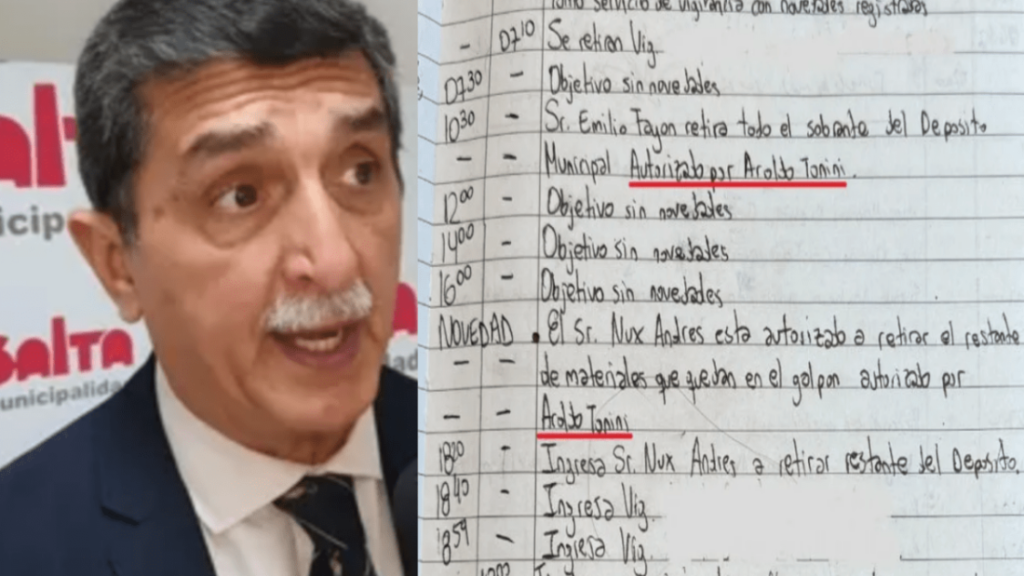 SALTA
municipalidad
SALTA
municipalidad
tomo servicio de vigilancia con novedades registradas
- 0710 Se retiran Vig
0730 - Objetivo sin novedades
1030 - Sr. Emilio Fayon retira todo el sobrante del Deposito
- - Municipal Autorizado por Aroldo Tonini.
1200 - Objetivo sin novedades
1400 - Objetivo sin novedades
1600 - Objetivo sin novedades
NOVEDAD • El Sr. Nux Andres esta autorizado a retirar el restante
- - de materiales que quedan en el galpon autorizado por
- - Aroldo Tonini
1820 - Ingresa Sr. Nux Andres a retirar restante del Deposito.
1840 - Ingresa Vig.
1859 - Ingresa Vig.